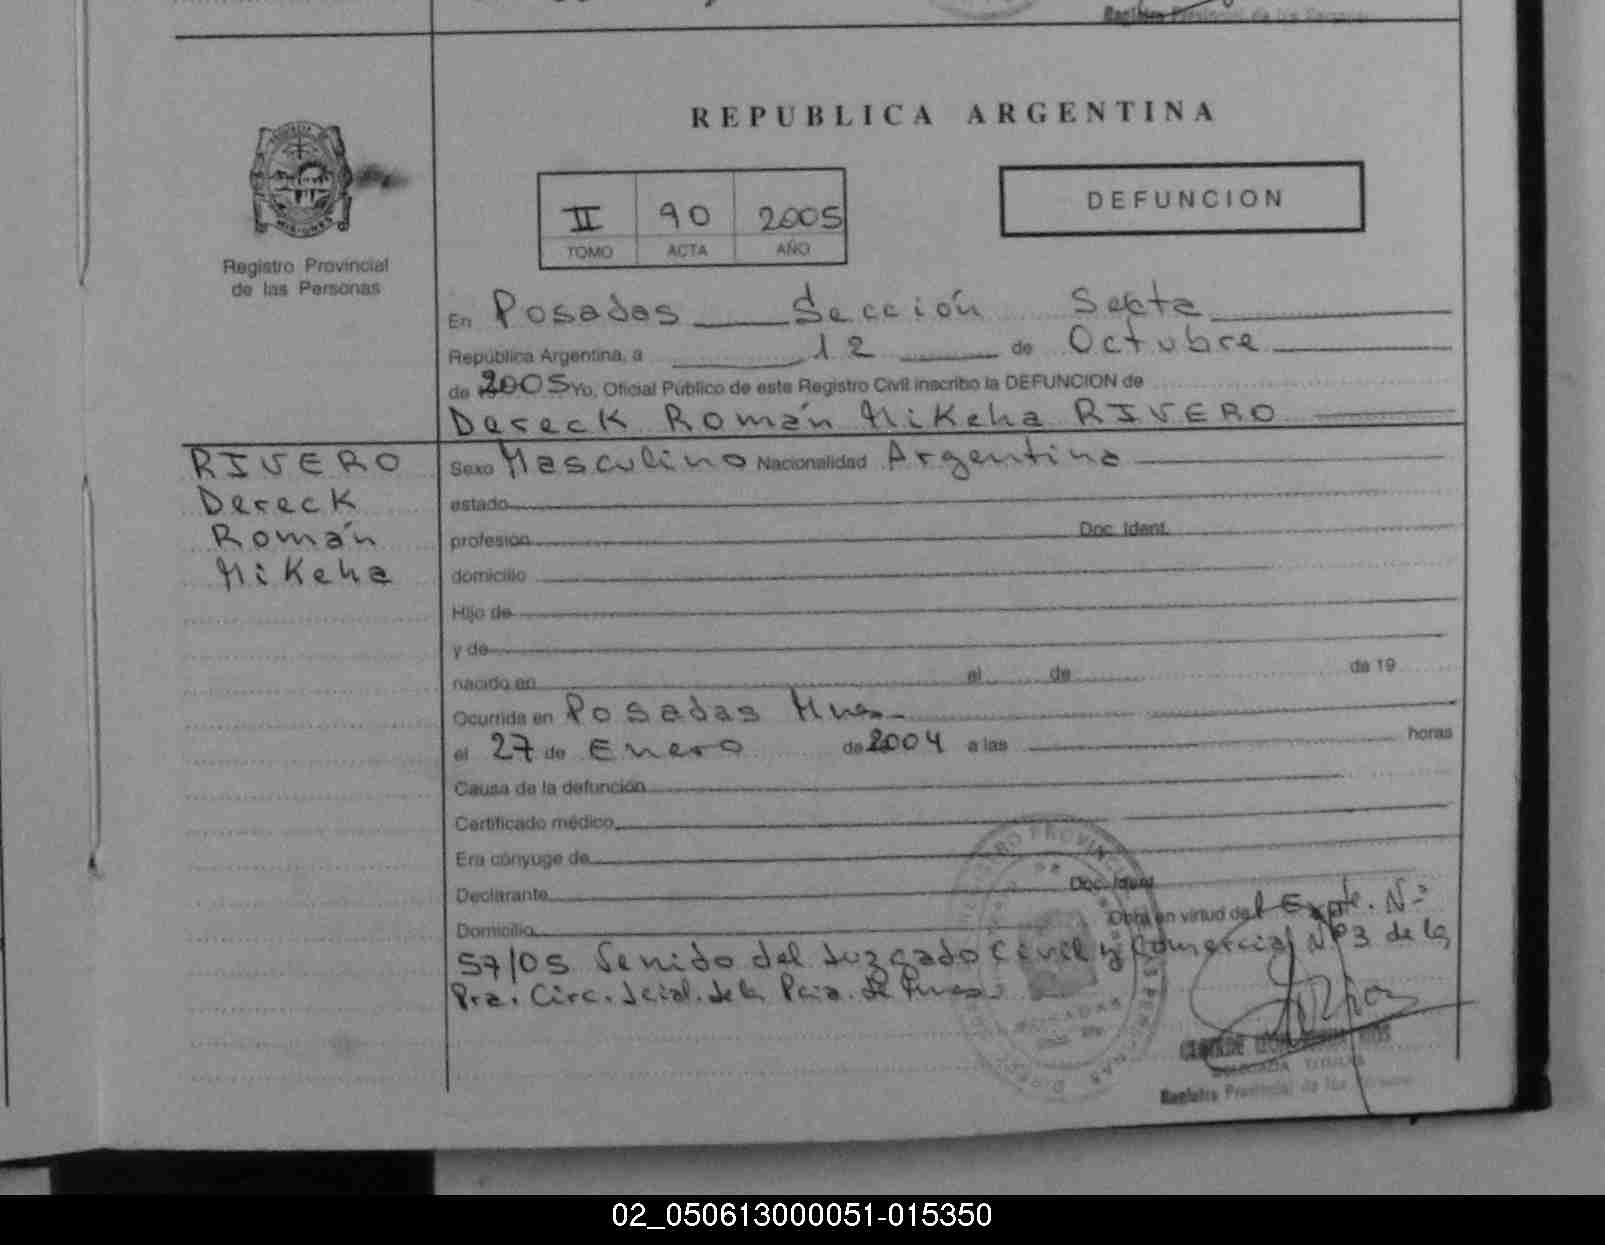 Registro Provincial de las Personas
REPUBLICA ARGENTINA
DEFUNCION
II 90 2005
TOMO ACTA AÑO
MISIONES
Registro Provincial
de las Personas
En Posadas Sección Sexta
República Argentina, a 12 de Octubre
de 2005 Yo, Oficial Público de este Registro Civil inscribo la DEFUNCION de
Dereck Román Mikeha RIVERO
RIVERO
Dereck
Román
Mikeha
Sexo Masculino Nacionalidad Argentina
estado
profesión Doc. Ident.
domicilio
Hijo de
y de
nacido en el de de 19
Ocurrida en Posadas Mnes.
el 27 de Enero de 2004 a las horas
Causa de la defunción
Certificado médico
Era cónyuge de
Declarante Doc. Ident.
Domicilio Obra en virtud del Expte. Nº
57/05 Venido del Juzgado Civil y Comercial Nº 3 de la
Pra. Circ. Jcial. de la Pcia. de Mnes.
REGISTRO PROVINCIAL
POSADAS
TITULAR
Registro Provincial de las Personas
02_050613000051-015350